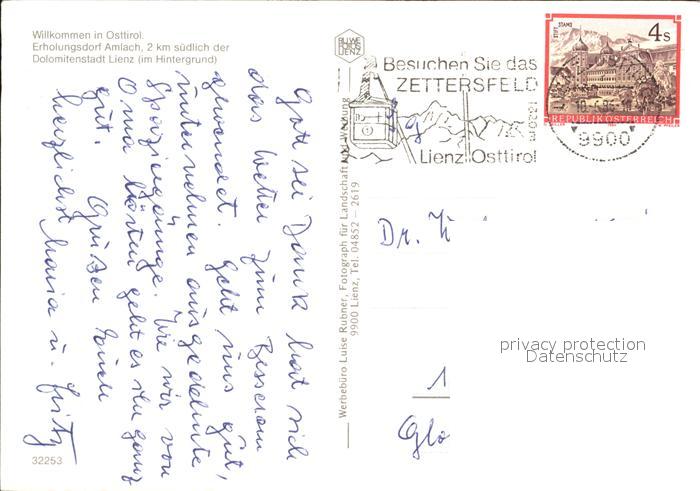 Willkommen in Osttirol.
Erholungsdorf Amlach, 2 km südlich der
Dolomitenstadt Lienz (im Hintergrund)
Gott sei Dank hat sich
das Wetter zum Besseren
gewendet. Geht uns gut,
unternehmen ausgedehnte
Spaziergänge. Wie wir von
Oma hörten geht es ihr ganz
gut. Grüßen Euch
herzlichst Maria u. Fritz
32253
Werbebüro Luise Rubner, Fotograph für Landschaft und Werbung
9900 Lienz, Tel. 04852 – 2619
RUWE
FOTOS
LIENZ
Besuchen Sie das
ZETTERSFELD
Lienz Osttirol
STIFT STAMS
4 S
REPUBLIK ÖSTERREICH
9900
Dr.
privacy protection
Datenschutz
1
Glo